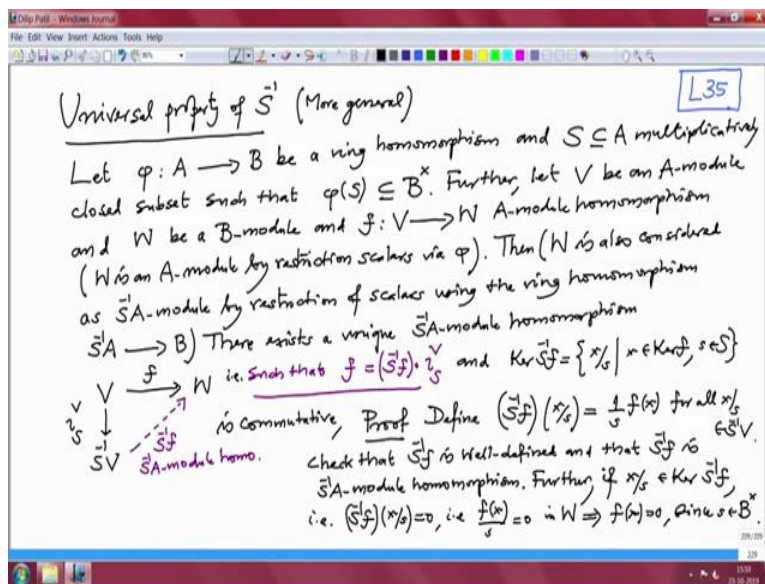 Dilip Patil - Windows Journal
File Edit View Insert Actions Tools Help
L35
Universal property of S⁻¹ (More general)
Let φ: A → B be a ring homomorphism and S ⊆ A multiplicatively
closed subset such that φ(S) ⊆ B^×. Further, let V be an A-module
and W be a B-module and f: V → W A-module homomorphism
(W is an A-module by restriction scalars via φ). Then (W is also considered
as S⁻¹A-module by restriction of scalars using the ring homomorphism
S⁻¹A → B) There exists a unique S⁻¹A-module homomorphism
V →f W i.e. such that f = (S⁻¹f)∘i_S^V and Ker S⁻¹f = {x/s | x ∈ Ker f, s ∈ S}
i_S^V ↓ S⁻¹f is commutative, Proof Define (S⁻¹f)(x/s) = 1/s f(x) for all x/s ∈ S⁻¹V.
S⁻¹V S⁻¹A-module homo. check that S⁻¹f is well-defined and that S⁻¹f is
S⁻¹A-module homomorphism. Further, if x/s ∈ Ker S⁻¹f,
i.e. (S⁻¹f)(x/s)=0, i.e. f(x)/s = 0 in W ⇒ f(x)=0, since s ∈ B^×
229/229
229
15:50
23-10-2019